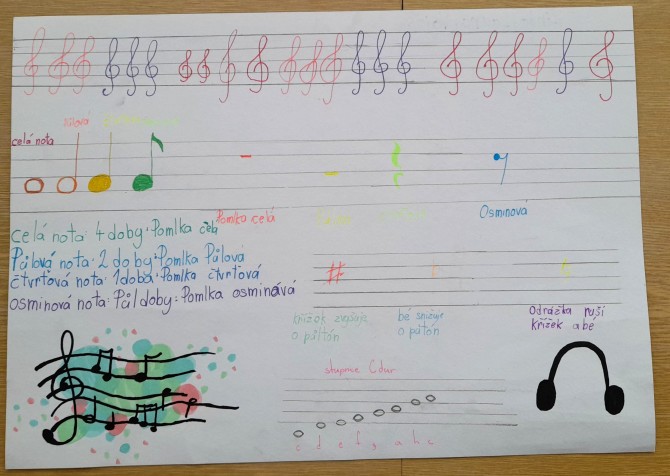 celá nota
půlová
Pomlka celá
Osminová
celá nota: 4 doby: Pomlka celá
Půlová nota: 2 doby: Pomlka Půlová
čtvrtová nota: 1 doba: Pomlka čtvrtová
osminová nota: Půl doby: Pomlka osminová
#
křížek zvyšuje
o půltón
bé snižuje
o půltón
Odrážka ruší
křížek a bé
stupnice C dur
c d e f g a h c